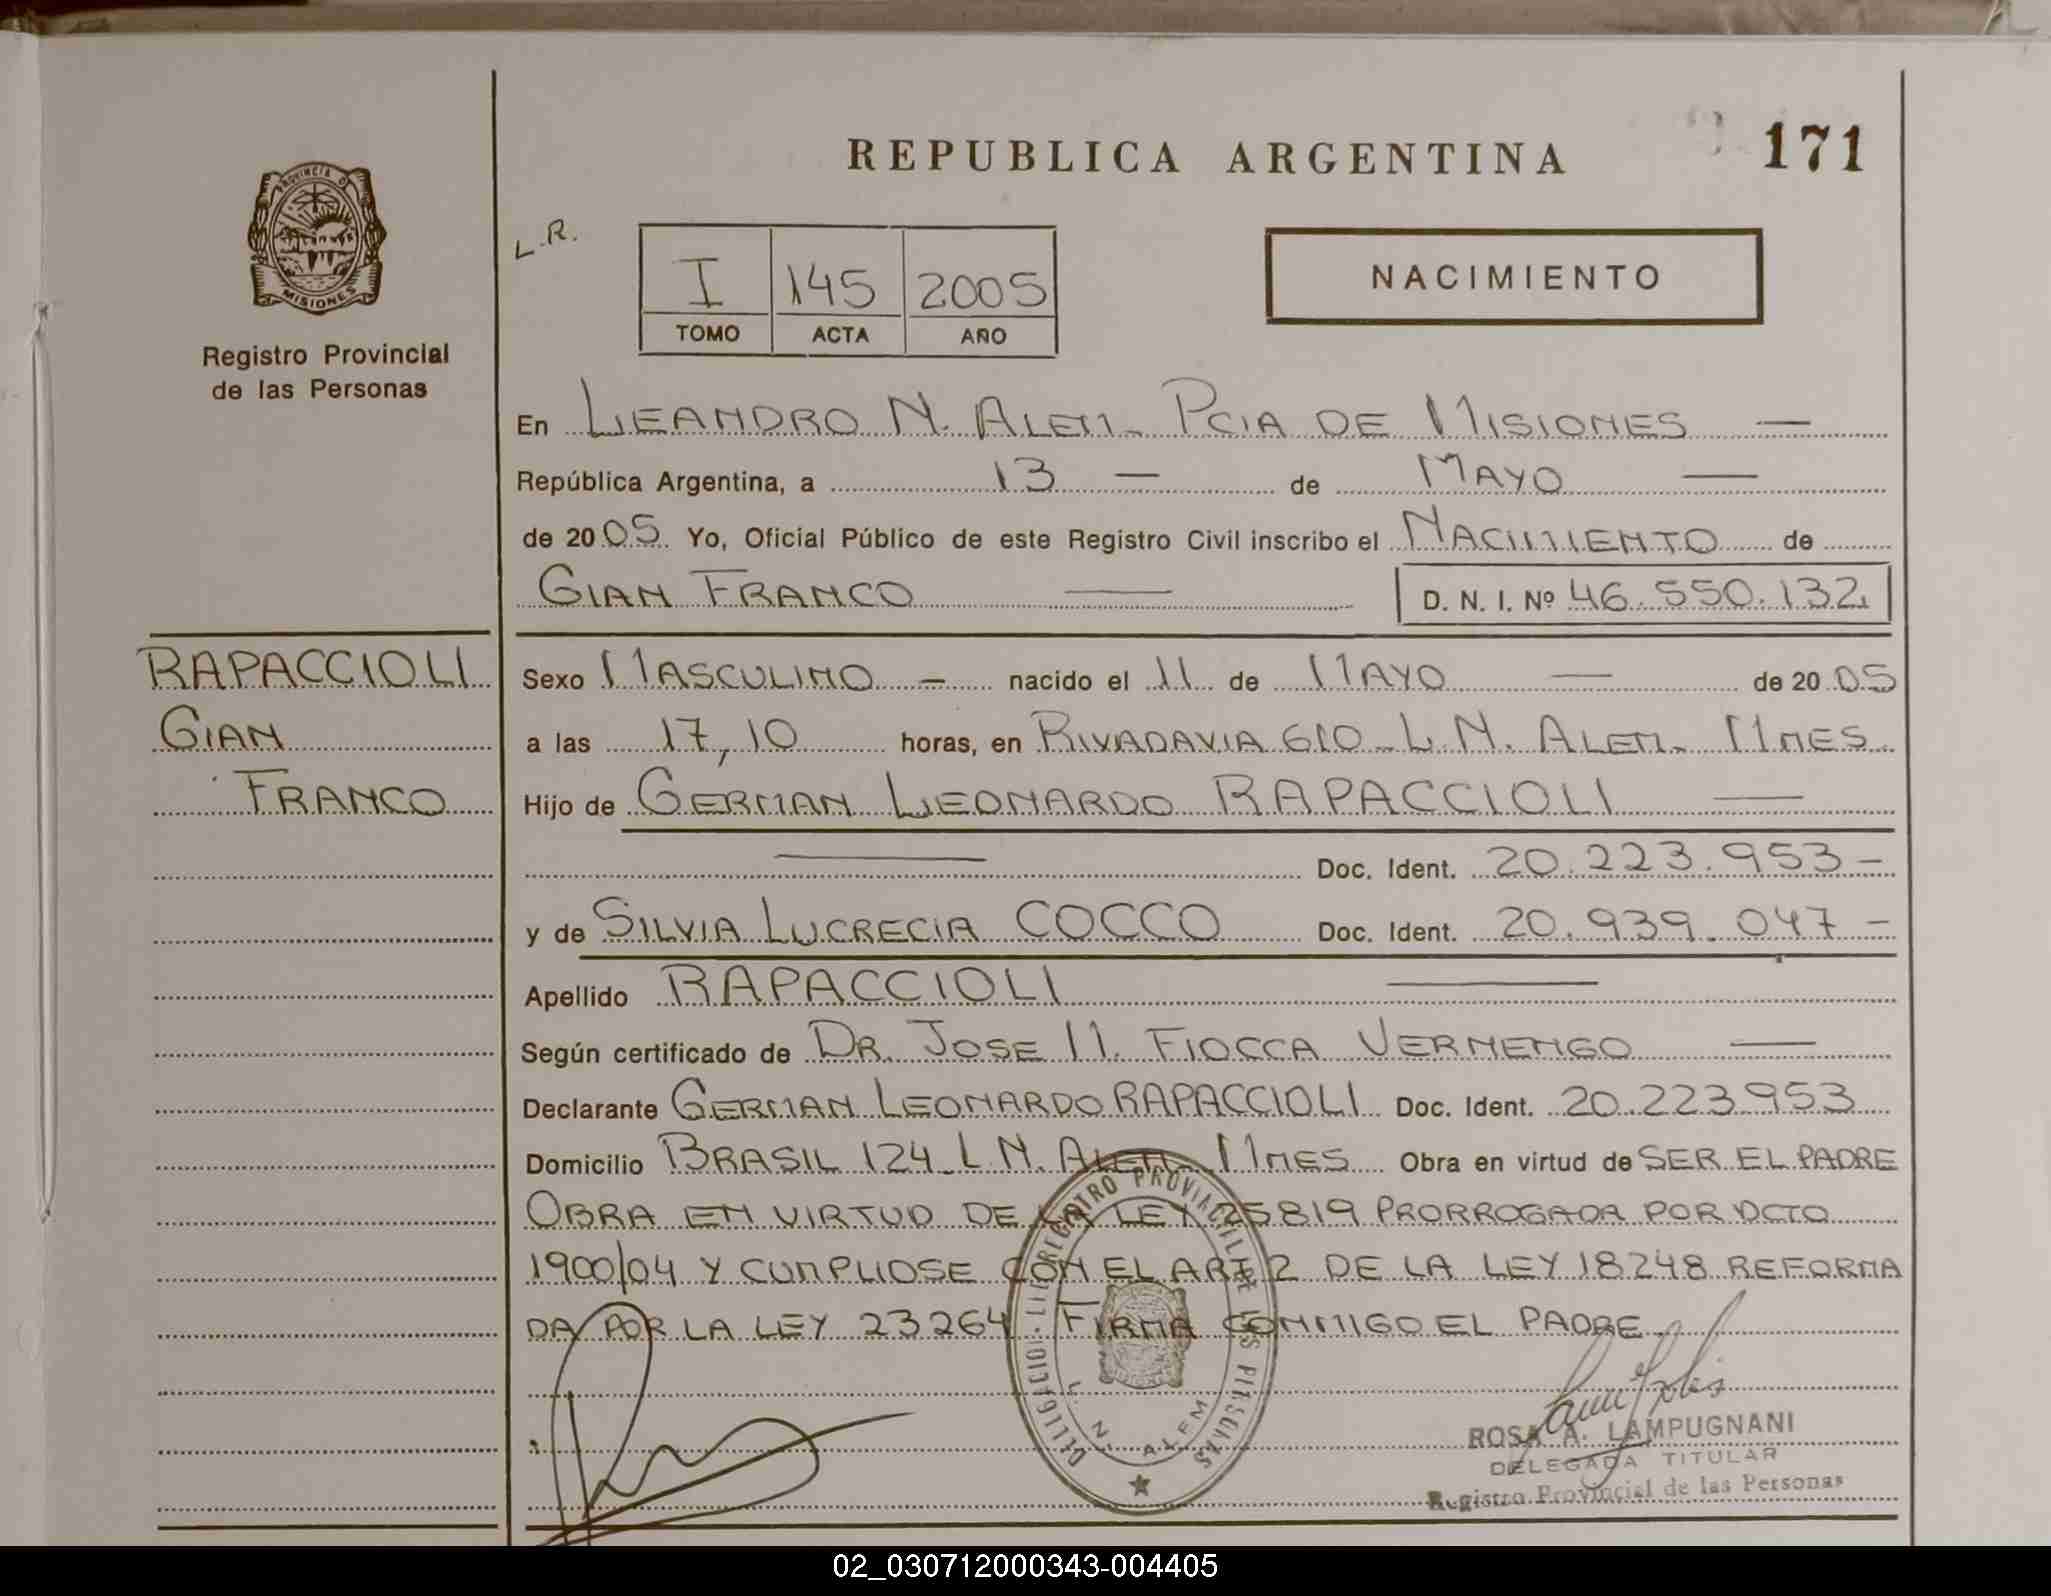 REPUBLICA ARGENTINA
171
PROVINCIA D
MISIONES
Registro Provincial
de las Personas
L.R.
I 145 2005
TOMO ACTA AÑO
NACIMIENTO
En LEANDRO N. ALEM - PCIA DE MISIONES —
República Argentina, a 13 — de MAYO —
de 2005 Yo, Oficial Público de este Registro Civil inscribo el NACIMIENTO de
GIAN FRANCO — D. N. I. Nº 46.550.132
RAPACCIOLI
GIAN
FRANCO
Sexo MASCULINO - nacido el 11 de MAYO — de 2005
a las 17,10 horas, en RIVADAVIA 610 - L.N. ALEM - MNES
Hijo de GERMAN LEONARDO RAPACCIOLI —
— Doc. Ident. 20.223.953-
y de SILVIA LUCRECIA COCCO Doc. Ident. 20.939.047-
Apellido RAPACCIOLI —
Según certificado de DR. JOSE M. FIOCCA VERNENGO —
Declarante GERMAN LEONARDO RAPACCIOLI Doc. Ident. 20.223953
Domicilio BRASIL 124 - L.N. ALEM - MNES Obra en virtud de SER EL PADRE
OBRA EN VIRTUD DE LA LEY 25819 PRORROGADA POR DCTO
1900/04 Y CUMPLIOSE CON EL ART 2 DE LA LEY 18248 REFORMA
DA POR LA LEY 23264 FIRMA CONMIGO EL PADRE
L. N. ALEM
ROSA A. LAMPUGNANI
DELEGADA TITULAR
Registro Provincial de las Personas
02_030712000343-004405